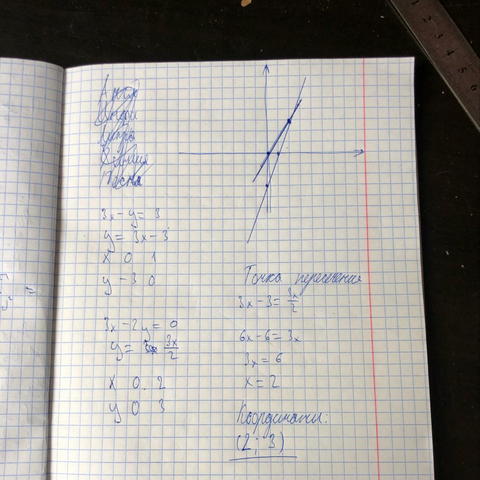 3x - y = 3
y = 3x - 3
x 0 1
y -3 0
3x - 2y = 0
y = 3x/2
x 0 2
y 0 3
Точка пересечения
3x - 3 = 3x/2
6x - 6 = 3x
3x = 6
x = 2
Координаты:
(2; 3)